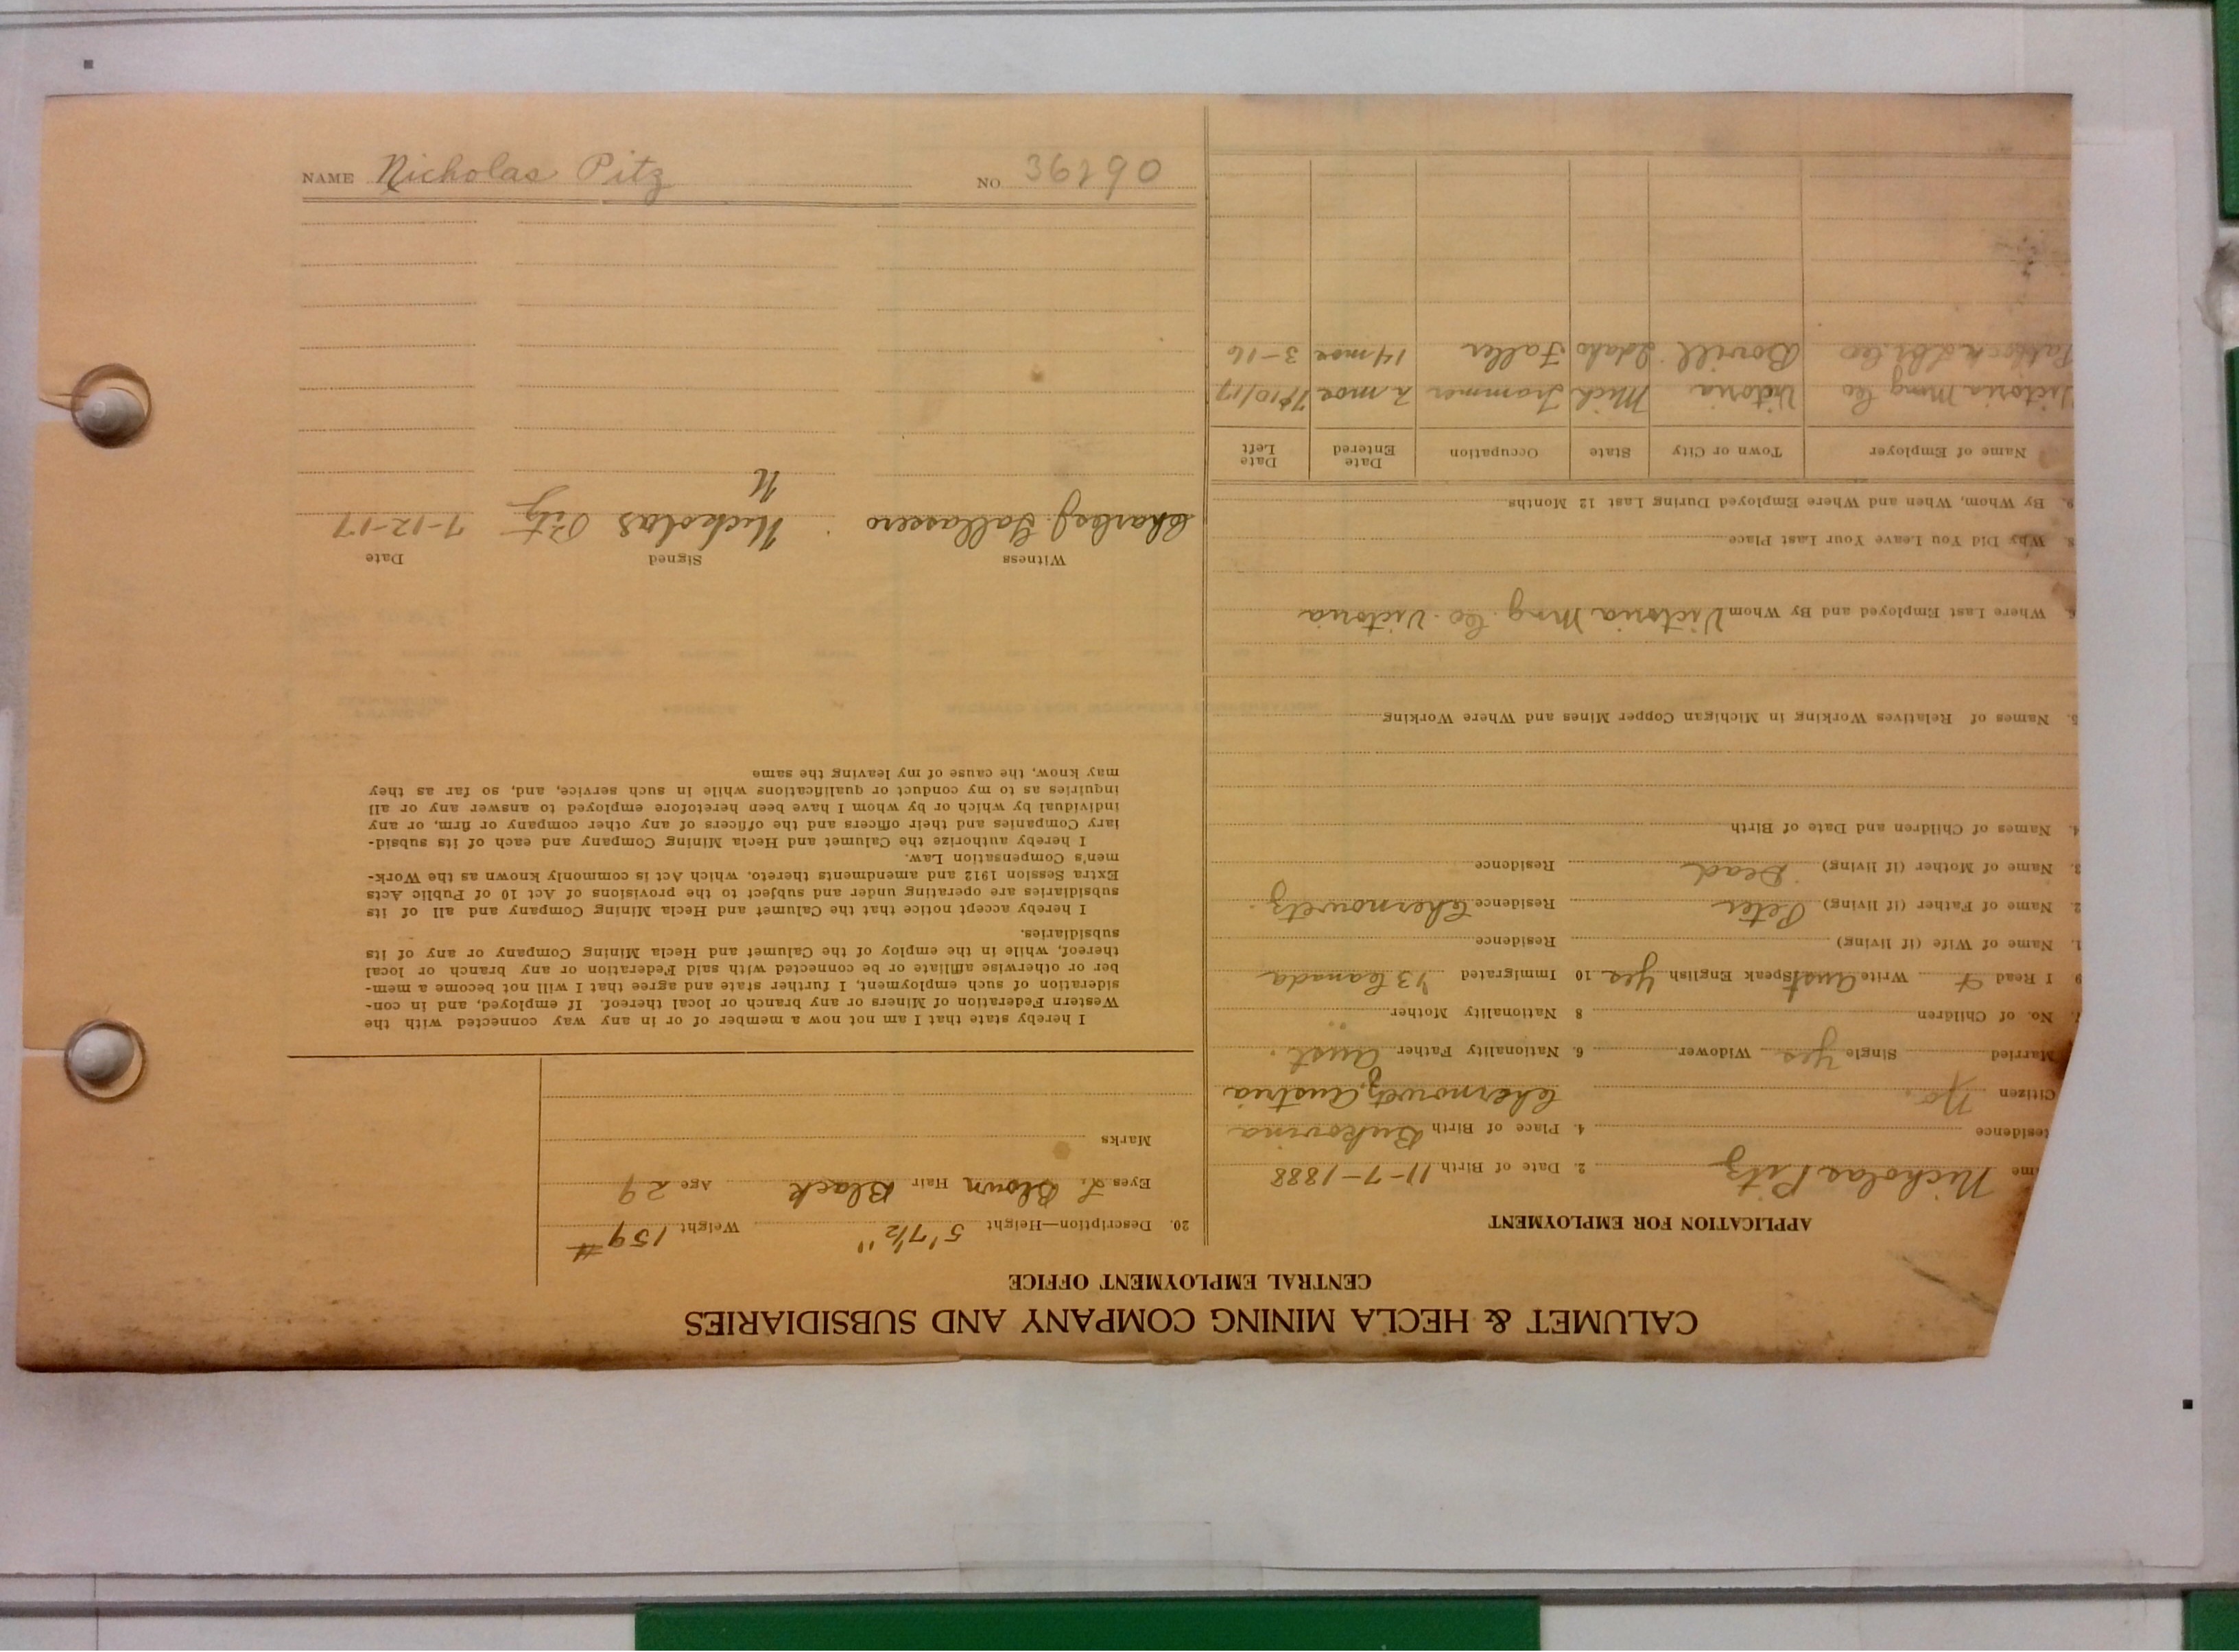 CALUMET & HECLA MINING COMPANY AND SUBSIDIARIES
CENTRAL EMPLOYMENT OFFICE
APPLICATION FOR EMPLOYMENT
me Nicholas Pitz 2. Date of Birth 11-7-1888
esidence 4. Place of Birth Bukovina
Citizen No. Chernowetz, Austria
Married Single Yes Widower 6. Nationality Father Aust.
7. No. of Children 8 Nationality Mother
9 I Read Write Aust Speak English Yes 10 Immigrated '13 Canada
1. Name of Wife (if living) Residence
2. Name of Father (if living) Peter Residence Chernowetz.
3. Name of Mother (if living) Dead Residence
4. Names of Children and Date of Birth
5. Names of Relatives Working in Michigan Copper Mines and Where Working
Where Last Employed and By Whom Victoria Mng. Co. Victoria
8. Why Did You Leave Your Last Place
9. By Whom, When and Where Employed During Last 12 Months
Name of Employer Town or City State Occupation Date Entered Date Left
Victoria Mng Co Victoria Mich Trammer 2 mos 7/10/17
Lbr. Co Bovill Idaho Faller 14 mos 3-16
20. Description—Height 5' 7½" Weight 159#
Eyes L. Brown Hair Black Age 29
Marks
I hereby state that I am not now a member of or in any way connected with the
Western Federation of Miners or any branch or local thereof. If employed, and in con-
sideration of such employment, I further state and agree that I will not become a mem-
ber or otherwise affiliate or be connected with said Federation or any branch or local
thereof, while in the employ of the Calumet and Hecla Mining Company or any of its
subsidiaries.
I hereby accept notice that the Calumet and Hecla Mining Company and all of its
subsidiaries are operating under and subject to the provisions of Act 10 of Public Acts
Extra Session 1912 and amendments thereto, which Act is commonly known as the Work-
men's Compensation Law.
I hereby authorize the Calumet and Hecla Mining Company and each of its subsid-
iary Companies and their officers and the officers of any other company or firm, or any
individual by which or by whom I have been heretofore employed to answer any or all
inquiries as to my conduct or qualifications while in such service, and, so far as they
may know, the cause of my leaving the same
Witness Signed Date
Nickolas Pitz 7-12-17
N
NAME Nicholas Pitz NO 36290